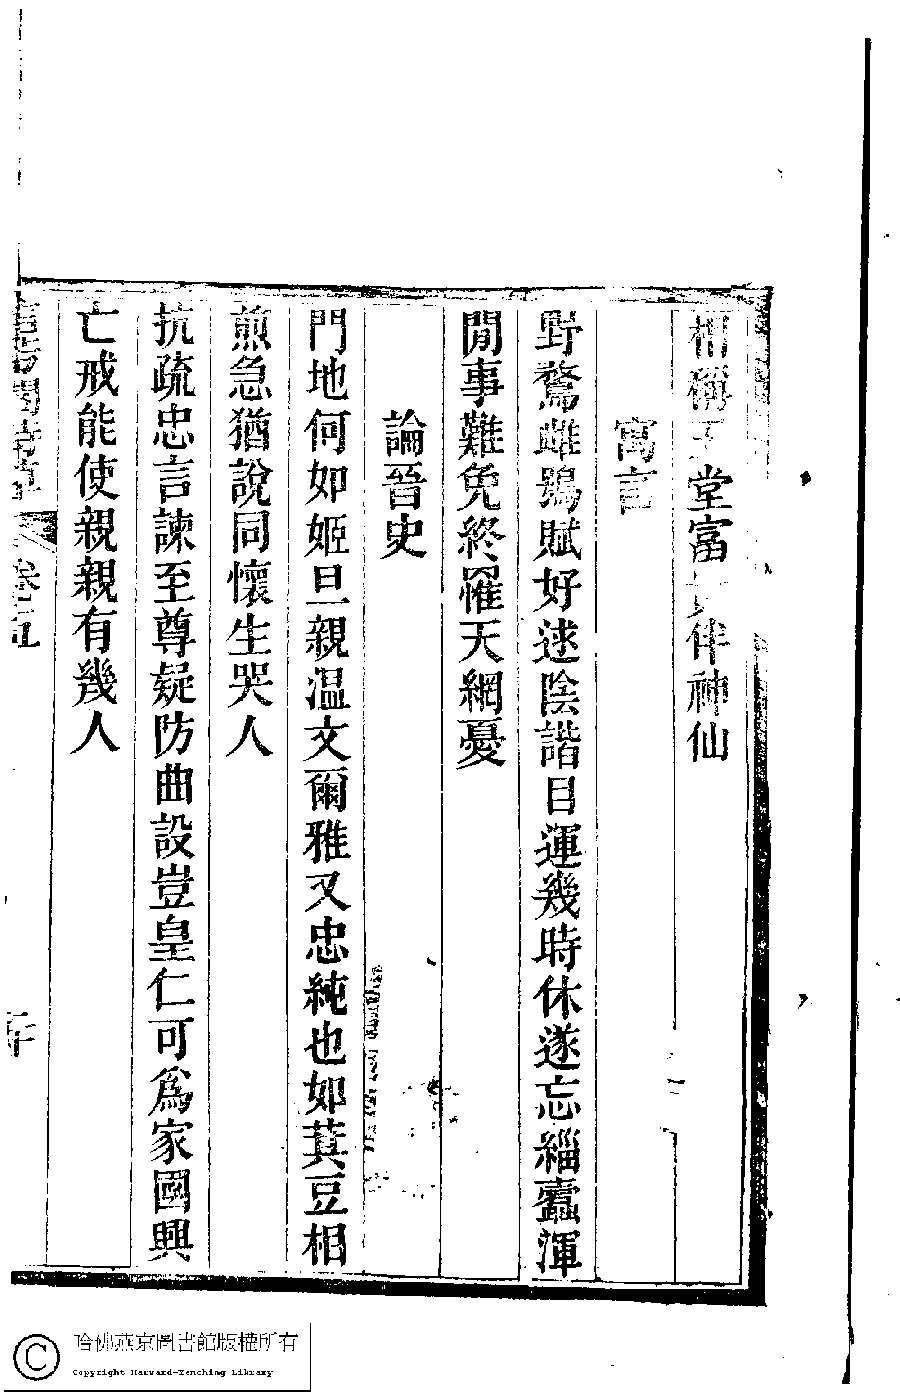 相稱玉堂富貴伴神仙
寓言
野鶩雌鴞賦好逑陰諧目運幾時休遂忘緇蠹渾
閒事難免終罹天網憂
論晉史
門地何如姬旦親温文爾雅又忠純也如萁豆相
煎急猶說同懷生哭人
抗疏忠言諫至尊疑防曲設豈皇仁可爲家國興
亡戒能使親親有幾人
卷五
哈佛燕京圖書館版權所有
Copyright Harvard-Yenching Library